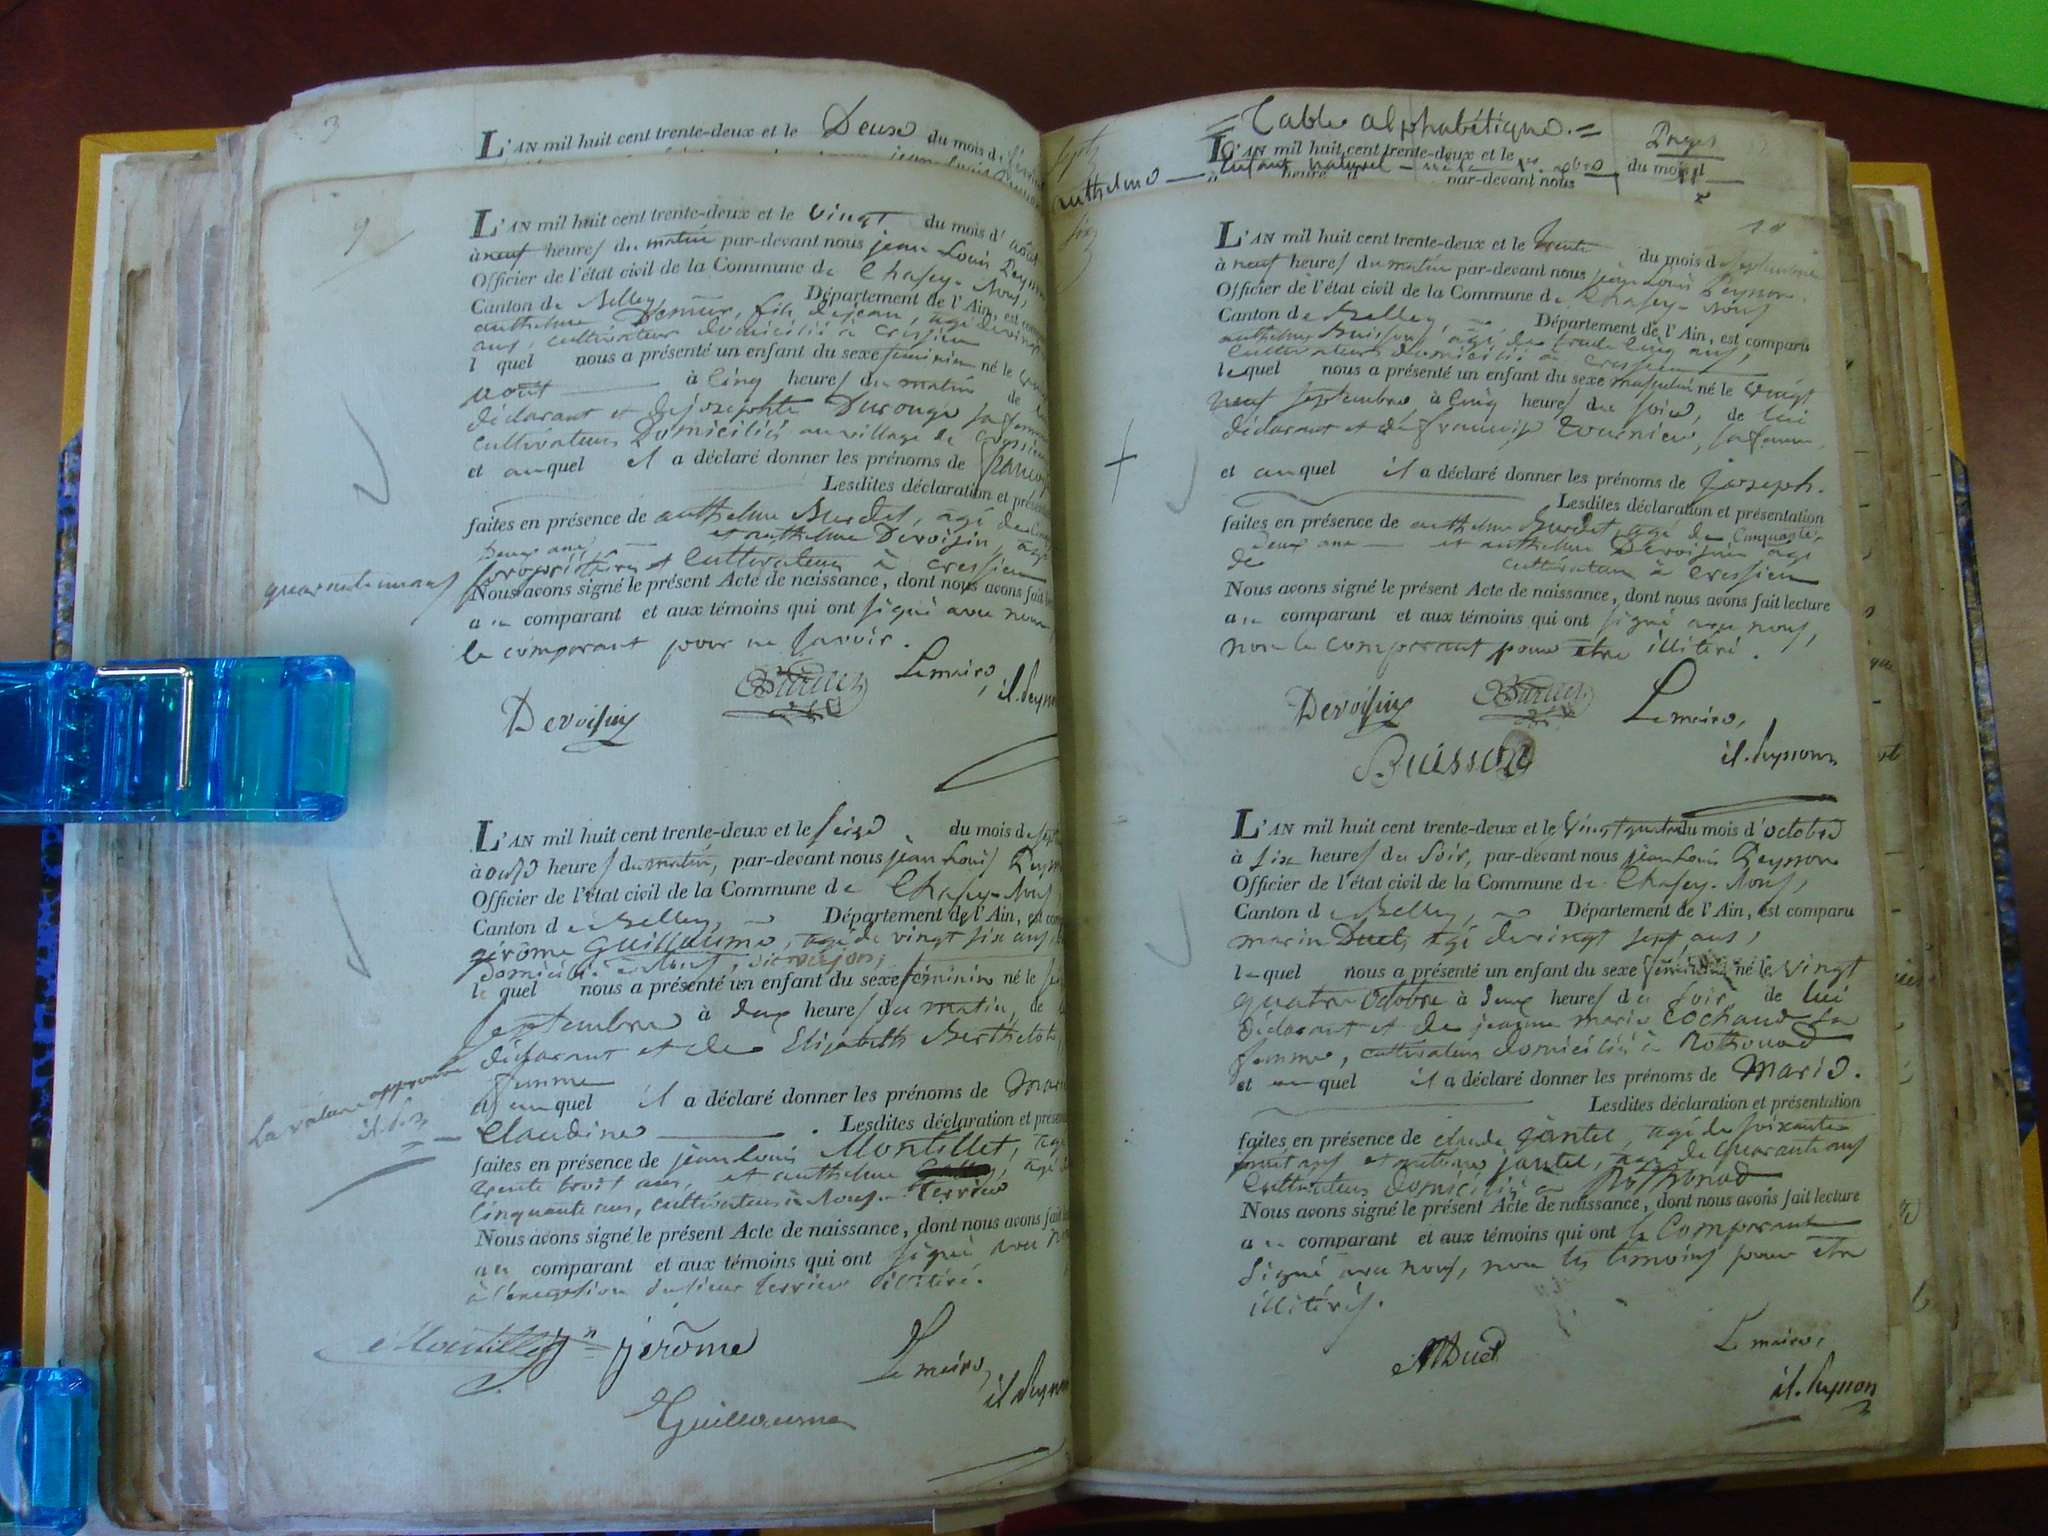 3
L'AN mil huit cent trente-deux et le Deux du mois d
9
L'AN mil huit cent trente-deux et le vingt du mois d'août
à neuf heures du matin par-devant nous jean Louis Peyson
Officier de l'état civil de la Commune de Chasey-
Canton de Belley Département de l'Ain, est
anthelme fils de jean, agé de vingt
ans, cultivateur domicilié à cressieu
l quel nous a présenté un enfant du sexe feminin né le
août à cinq heures du matin de
déclarant et de josephte sa femme
cultivateurs Domiciliés au village de Cressieu
et auquel il a déclaré donner les prénoms de
Lesdites déclaration et
faites en présence de anthelme Burdet, agé de
Deux ans, et anthelme Devoisin, agé
quarante neuf propriétaires et cultivateurs à cressieu
Nous avons signé le présent Acte de naissance, dont nous avons fait
au comparant et aux témoins qui ont signé avec nous
le comparant pour ne savoir.
Devoisin Burdet Le maire,
L'AN mil huit cent trente-deux et le seize du mois de
à onze heures du matin, par-devant nous jean Louis
Officier de l'état civil de la Commune de Chasey-
Canton de Belley, Département de l'Ain, est
jérôme Guillaume, agé de vingt six ans,
domicilié à
le quel nous a présenté un enfant du sexe féminin né le
septembre à deux heures du matin, de
déclarant et de Elizabeth Berthelot,
femme
et auquel il a déclaré donner les prénoms de Marie
La rature approuvée
Claudine . Lesdites déclaration et
faites en présence de jean Louis Montillet, agé
trente trois ans, et anthelme agé de
Cinquante ans, cultivateurs à Terrier
Nous avons signé le présent Acte de naissance, dont nous avons fait
au comparant et aux témoins qui ont signé avec
à l'exception du sieur Terrier illitéré.
Montillet jérôme Le maire,
Guillaume
= Table alphabétique. = Pages
L'AN mil huit cent trente-deux et le du mois d
anthelme Enfant naturel
heure à par-devant nous
L'AN mil huit cent trente-deux et le trente du mois de septembre
à neuf heures du matin par-devant nous jean Louis Peyson
Officier de l'état civil de la Commune de Chasey-
Canton de Belley, Département de l'Ain, est comparu
anthelme Buisson, agé de trente cinq ans,
cultivateur domicilié à cressieu
le quel nous a présenté un enfant du sexe masculin né le vingt
neuf septembre à cinq heures du soir, de lui
déclarant et de françoise Tournier, sa femme
et auquel il a déclaré donner les prénoms de joseph.
Lesdites déclaration et présentation
faites en présence de anthelme Burdet agé de Cinquante
deux ans et anthelme Devoisin agé
de cultivateurs à cressieu
Nous avons signé le présent Acte de naissance, dont nous avons fait lecture
au comparant et aux témoins qui ont signé avec nous,
non le comparant pour être illitéré.
Devoisin Burdet Le maire,
Buisson
L'AN mil huit cent trente-deux et le vingt quatre du mois d'octobre
à six heures du soir, par-devant nous jean Louis Peyson
Officier de l'état civil de la Commune de Chasey-
Canton de Belley, Département de l'Ain, est comparu
marin Duet, agé de vingt sept ans,
lequel nous a présenté un enfant du sexe féminin né le vingt
quatre octobre à deux heures du soir, de lui
déclarant et de jeanne marie Cochaud sa
femme, cultivateurs domiciliés à Rothonod
et auquel il a déclaré donner les prénoms de Marie.
Lesdites déclaration et présentation
faites en présence de claude jantet, agé de soixante
huit ans et antoine jantet, agé de quarante ans
Cultivateurs domiciliés à Rothonod
Nous avons signé le présent Acte de naissance, dont nous avons fait lecture
au comparant et aux témoins qui ont le Comparant
Signé avec nous, non les témoins pour être
illitérés.
MDuet Le maire,